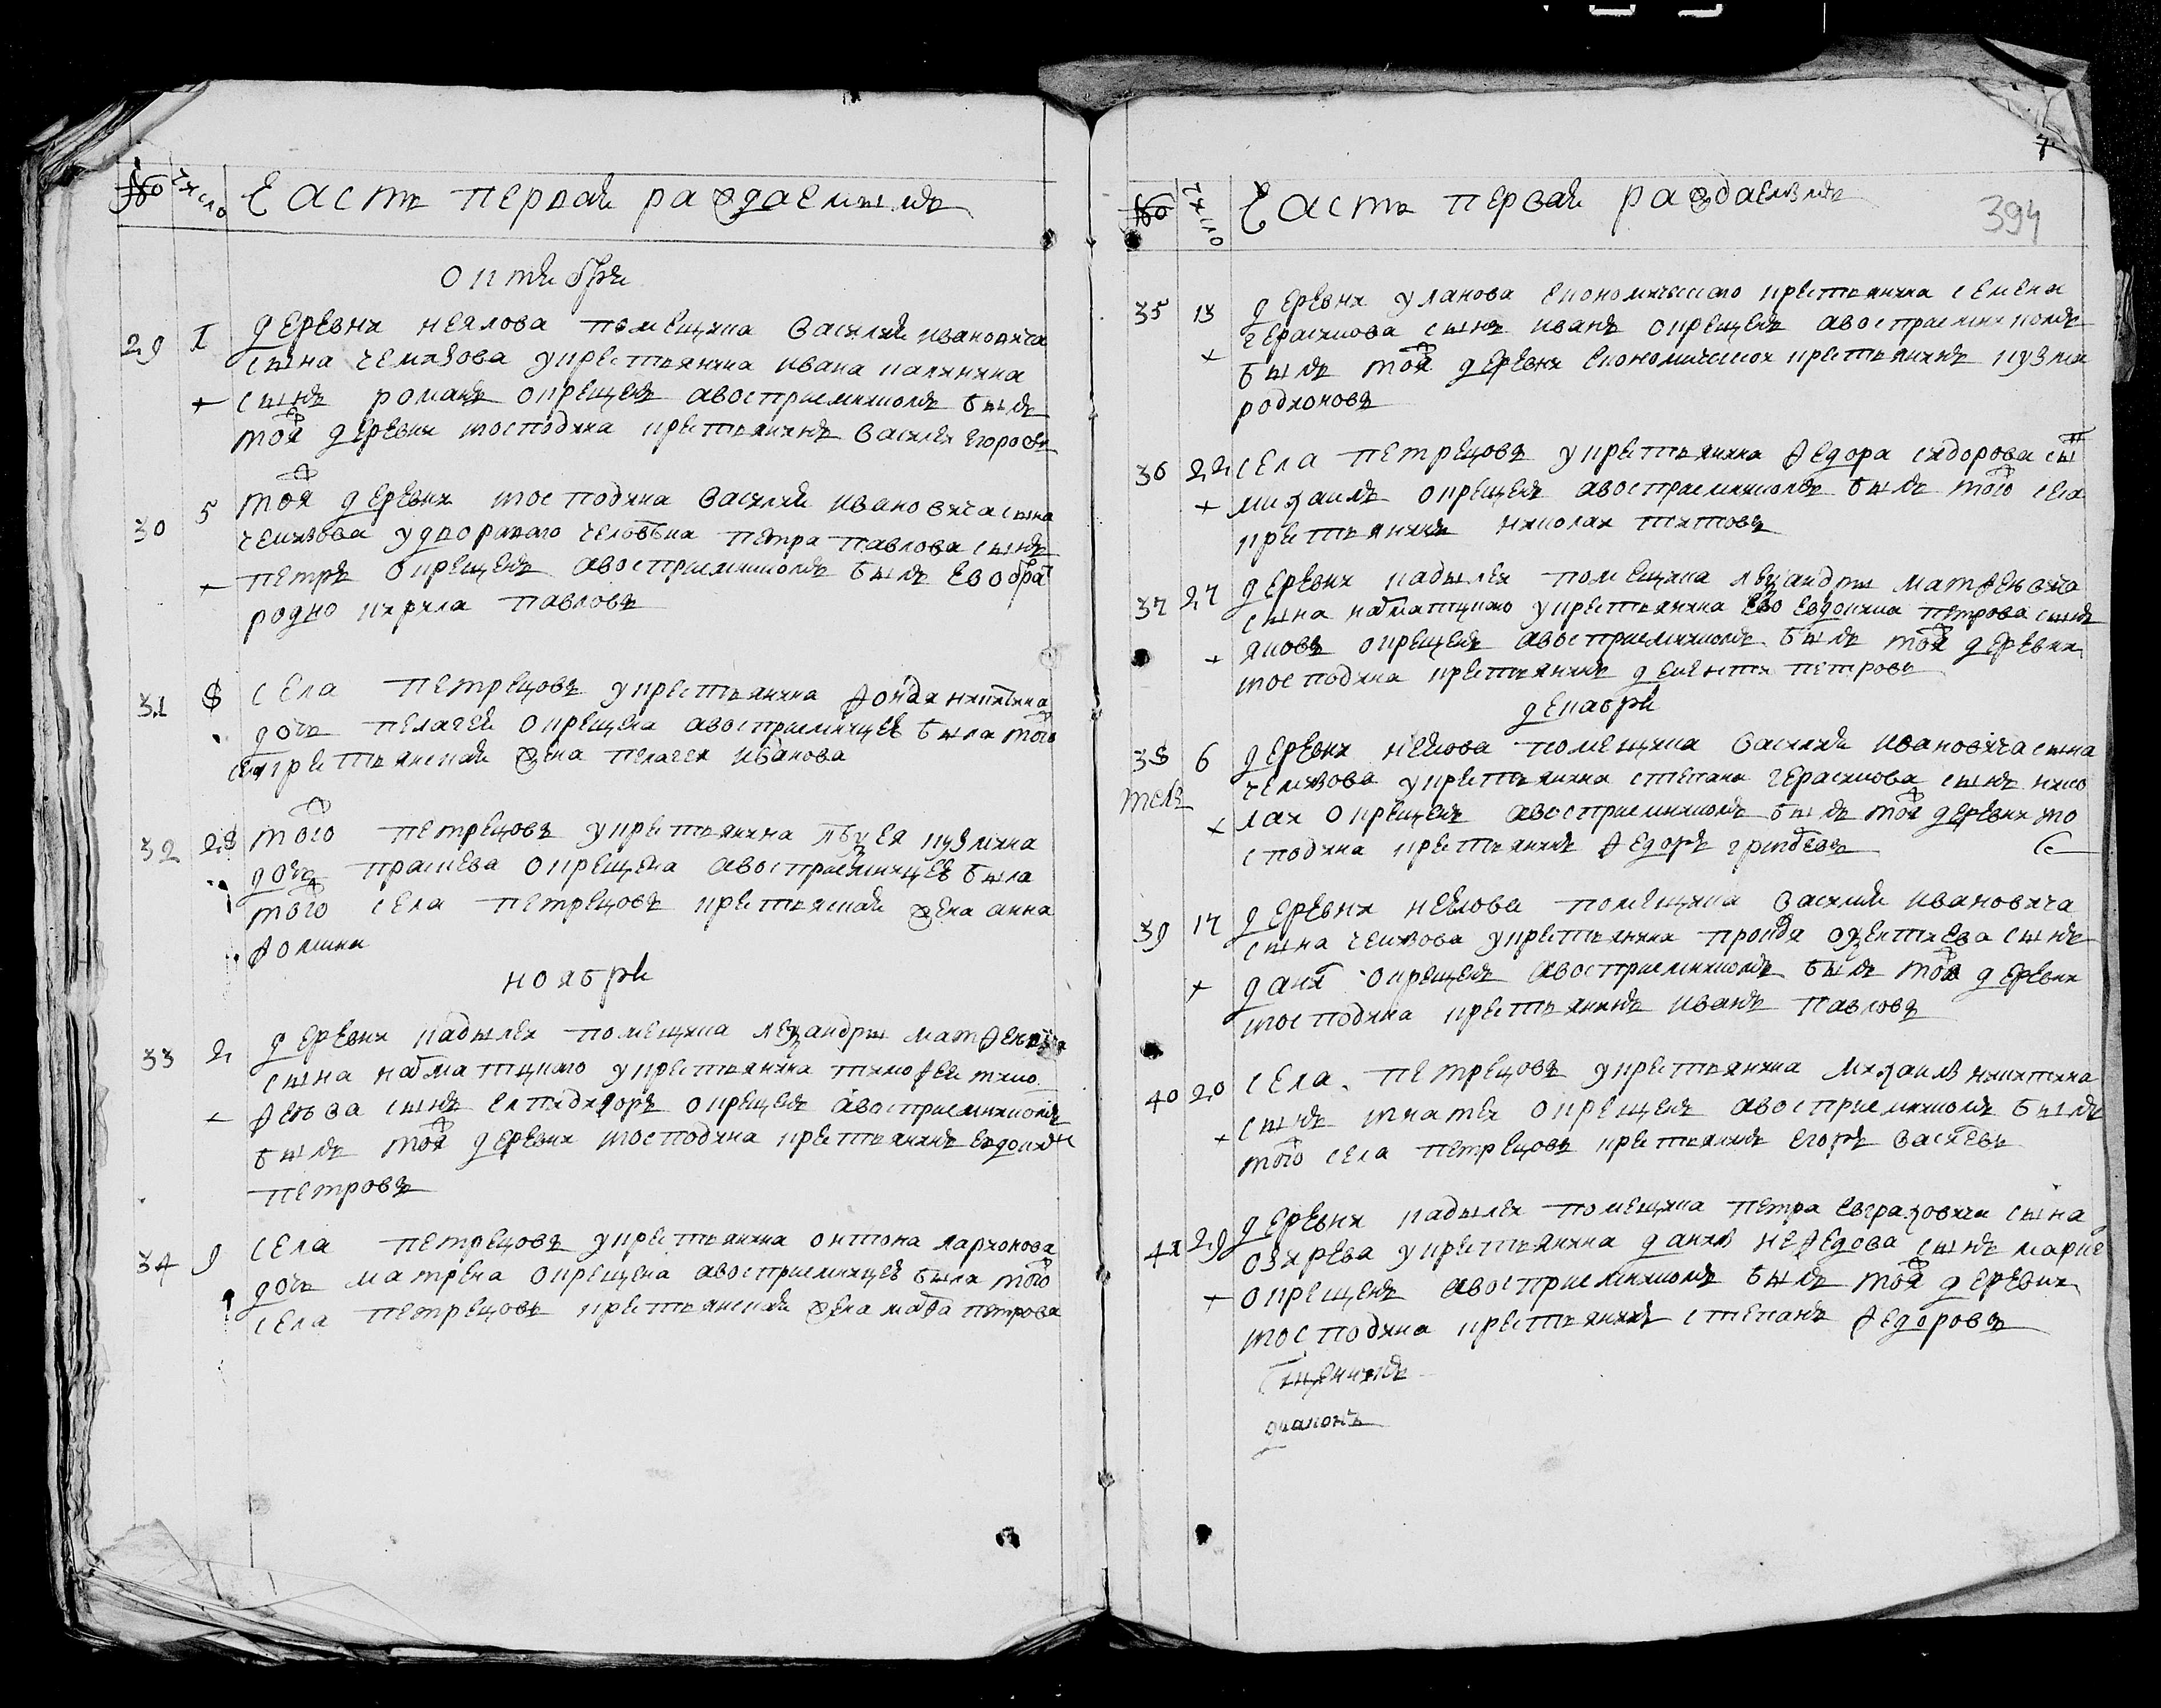 № число Часть первая раждаемымъ
октября
29 1 деревни неялова помещика василия ивановича
сына чемизова у крестьянина ивана калинина
+ сынъ романъ окрещенъ авосприемникомъ былъ
тоя деревни тогосподина крестьянинъ василеи егоровъ
30 5 тоя деревни тогосподина василия ивановича сына
чемизова у двороваго человѣка петра павлова сынъ
+ петръ окрещенъ авосприемникомъ былъ ево
родно кирила павловъ
31 8 села петрецовъ у крестьянина никитина
дочь пелагея окрещена авосприемницеѣ была того
села крестьянская жена пелагея иванова
32 23 того петрецовъ у крестьянина кузмина
дочь окрещена авосприемницеѣ была
того села петрецовъ крестьянская жена анна
фомина
ноября
33 2 деревни кадылеи помещика леѯандры матфеевича
сына у крестьянина тимофея тимо
+ феева сынъ елпидифоръ окрещенъ авосприемникомъ
былъ тоя деревни тогосподина крестьянинъ евдоким
петровъ
34 9 села петрецовъ у крестьянина онтона ларионова
дочь матрена окрещена авосприемницеѣ была того
села петрецовъ крестьянская жена петрова
№ число Часть первая раждаемымъ
7
394
35 13 деревни уланова економическаго крестьянина семена
+ герасимова сынъ иванъ окрещенъ авосприемникомъ
былъ тоя деревни економическои крестьянинъ кузма
родионовъ
36 22 села петрецовъ у крестьянина федора сидорова сын
+ михаилъ окрещенъ авосприемникомъ былъ того села
крестьянинъ николаи титовъ
37 27 деревни кадылеи помещика леѯандры матфеевича
сына у крестьянина ево евдокима петрова сынъ
+ яковъ окрещенъ авосприемникомъ былъ тоя деревни
тогосподина крестьянинъ дементеи петровъ
декабря
38 6 деревни неялова помещика василия ивановича сына
чемизова у крестьянина степана герасимова сынъ нико
+ лаи окрещенъ авосприемникомъ былъ тоя деревни то
сподина крестьянинъ федоръ
39 17 деревни неялова помещика василия ивановича
сына чемизова у крестьянина сынъ
+ данил окрещенъ авосприемникомъ былъ тоя деревни
тогосподина крестьянинъ иванъ павловъ
40 20 села петрецовъ у крестьянина михаила никитина
+ сынъ игнатеи окрещенъ авосприемникомъ былъ
того села петрецовъ крестьянинъ егоръ
41 29 деревни кадылеи помещика петра евграфовича сына
озирева у крестьянина данила нефедова сынъ
+ окрещенъ авосприемникомъ былъ тоя деревни
тогосподина крестьянинъ степанъ федоровъ